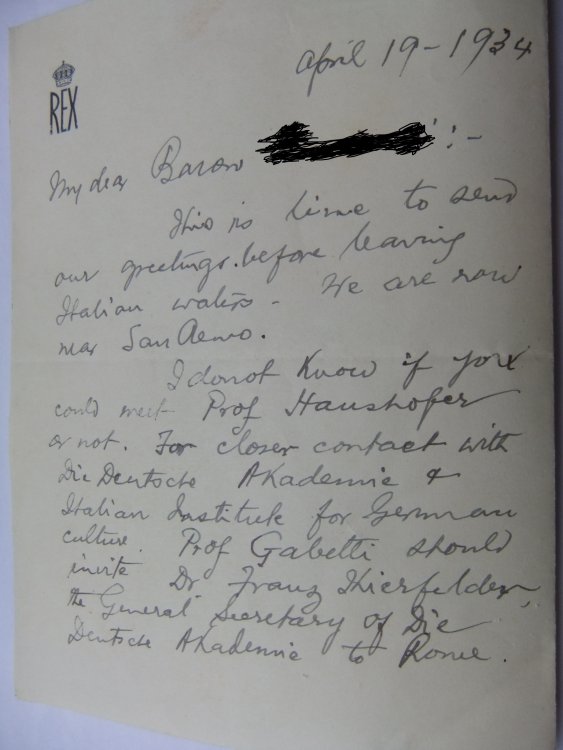 REX
April 19 - 1934
My dear Baron :-
This is time to send
our greetings before leaving
Italian waters - We are now
near San Remo.
I donot Know if you
could meet Prof Haushofer
or not. For closer contact with
Die Deutsche Akademie &
Italian Institute for German
culture. Prof Gabetti should
invite Dr Franz Thierfelder,
the General Secretary of Die
Deutsche Akademie to Rome.